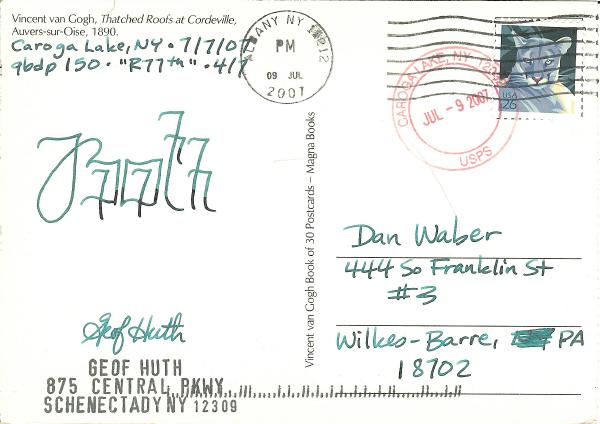 Vincent van Gogh, Thatched Roofs at Cordeville,
Auvers-sur-Oise, 1890.
Caroga Lake, NY • 7/7/07
qbdp 150 • "R77th" • 4/7
ALBANY NY 12212
PM
09 JUL
2007
CAROGA LAKE, NY
JUL - 9 2007
USPS
USA
26
Vincent van Gogh Book of 30 Postcards – Magna Books
Dan Waber
444 So Franklin St
#3
Wilkes-Barre, PA
18702
Geof Huth
GEOF HUTH
875 CENTRAL PKWY
SCHENECTADY NY 12309